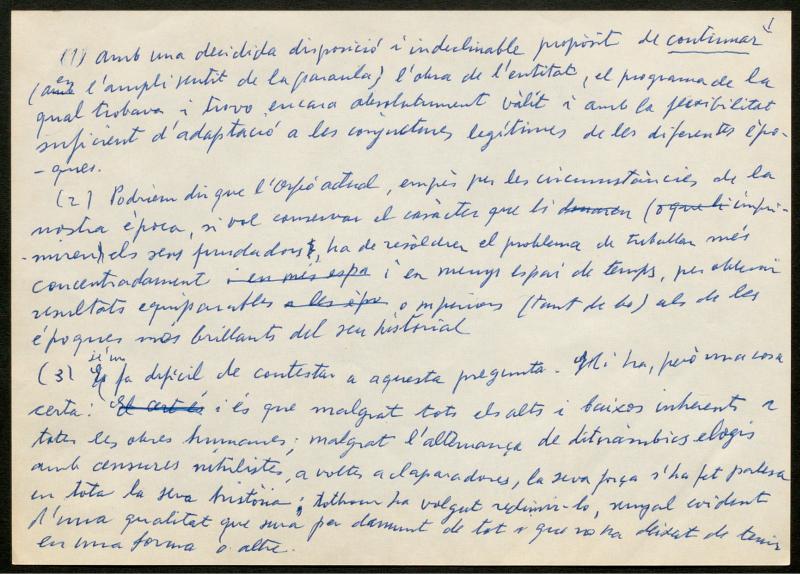 (1) amb una decidida disposició i indeclinable propòsit de continuar
(amb en l'ampli sentit de la paraula) l'obra de l'entitat, el programa de la
qual trobava i trovo encara absolutament vàlit i amb la flexibilitat
suficient d'adaptació a les conjuctures legítimes de les diferentes èpo-
-ques.
(2) Podriem dir que l'Orfeó actual, empès per les circumstàncies de la
nostra època, si vol conservar el caràcter que li donaren (o que li impri-
-miren) els seus fundadors, ha de resòldrer el problema de treballar més
concentradament i en més espa i en menys espai de temps, per obtenir
resultats equiparables a les èpo o superiors (tant de bo) als de les
èpoques més brillants del seu historial
(3) Se'm fa difícil de contestar a aquesta pregunta. Hi ha, però una cosa
certa: El cert és i és que malgrat tots els alts i baixos inherents a
totes les obres humanes; malgrat l'alternança de ditiràmbics elogis
amb censures nihilistes, a voltes aclaparadores, la seva força s'ha fet palesa
en tota la seva història; tothom ha volgut redimir-lo, senyal evident
d'una qualitat que sura per damunt de tot i que no ha deixat de tenir
en una forma o altre.